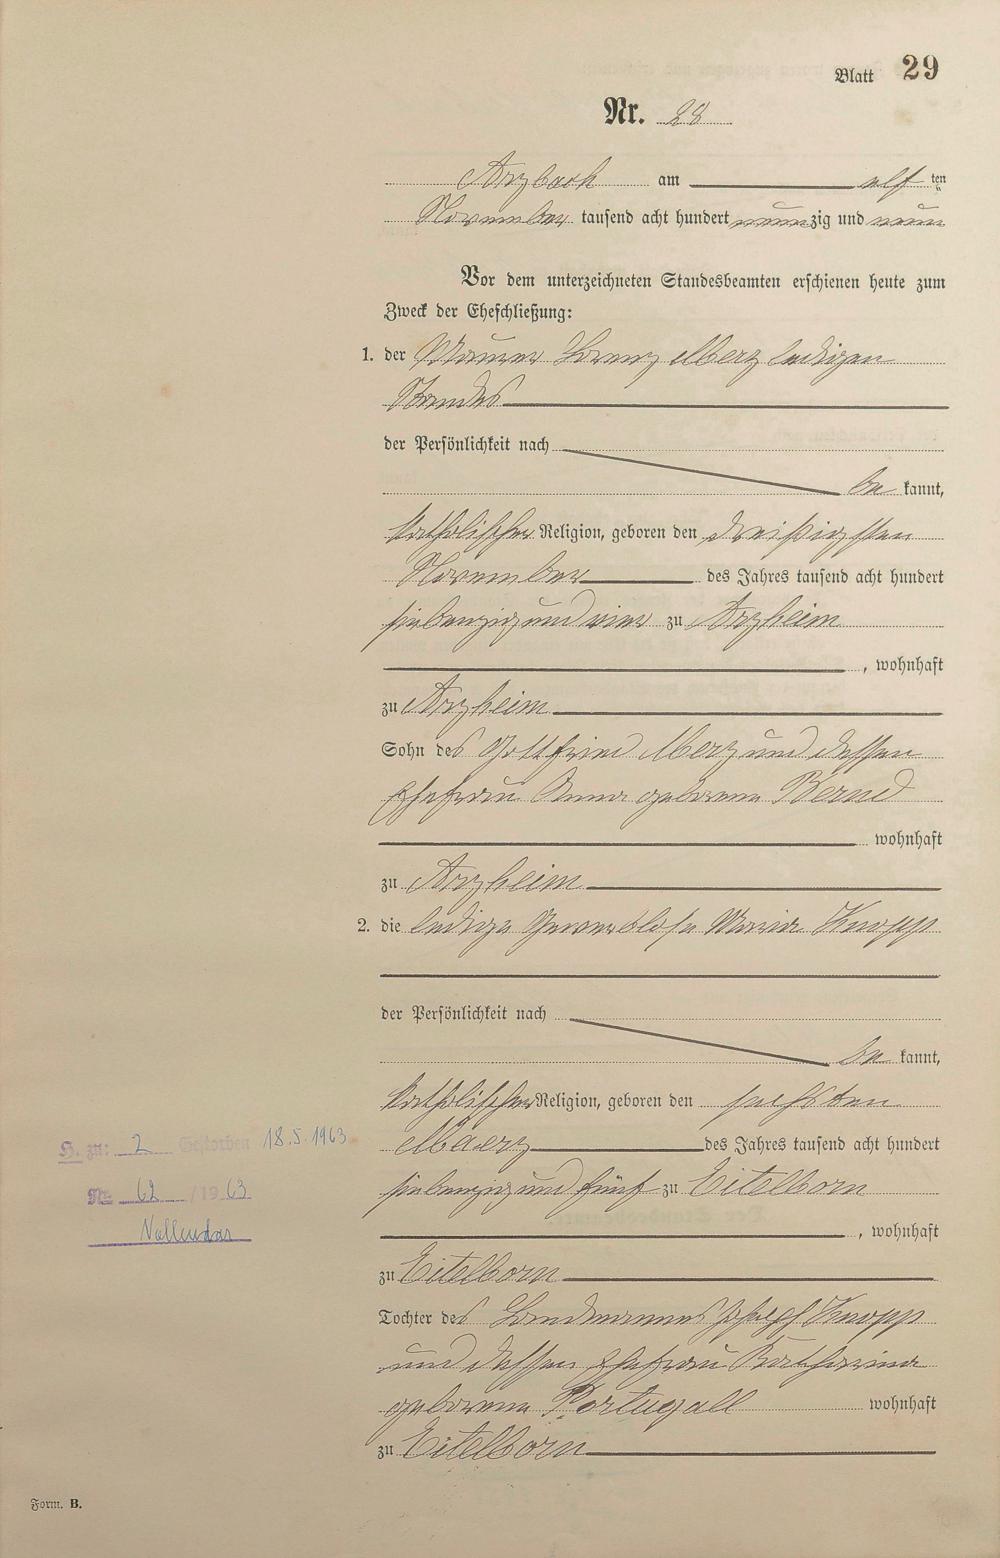 Blatt 29
Nr. 28
Arzbach am elf ten
November tausend acht hundert neunzig und neun
Vor dem unterzeichneten Standesbeamten erschienen heute zum
Zweck der Eheschließung:
1. der Maurer Lorenz Merz ledigen
Standes
der Persönlichkeit nach
be kannt,
katholischer Religion, geboren den dreißigsten
November des Jahres tausend acht hundert
siebenzig und vier zu Arzheim
, wohnhaft
zu Arzheim
Sohn des Gottfried Merz und dessen
Ehefrau Anna geborene Bernd
wohnhaft
zu Arzheim
2. die ledige Gewerblose Maria Knopp
der Persönlichkeit nach
be kannt,
katholischer Religion, geboren den sechsten
Maerz des Jahres tausend acht hundert
siebenzig und fünf zu Eitelborn
, wohnhaft
zu Eitelborn
Tochter des Landmannes Joseph Knopp
und dessen Ehefrau Katharina
geborene Portugall wohnhaft
zu Eitelborn
H. zu: 2 Gestorben 18.5.1963
Nr. 62 /1963
Vallendar
Form. B.